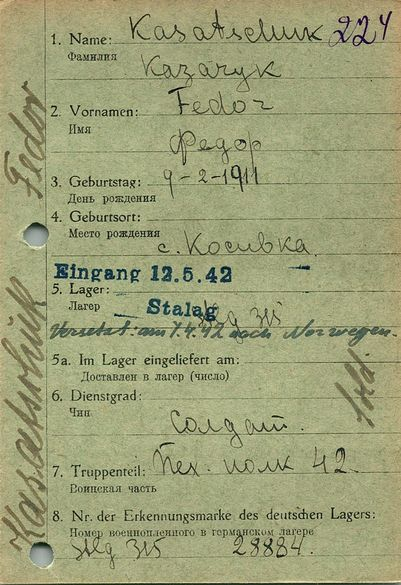 1. Name: Kasatschuk 224
Фамилия
Казачук
2. Vornamen: Fedor
Имя
Федор
3. Geburtstag: 9-2-1911
День рождения
4. Geburtsort:
Место рождения
с. Косивка.
Eingang 12.5.42
5. Lager: Stalag
Лагерь Stlg 315
Versetzt am 7.4.42 nach Norwegen.
5a. Im Lager eingeliefert am:
Доставлен в лагер (число)
6. Dienstgrad:
Чин
Солдат.
7. Truppenteil: Пех. полк 42.
Воинская часть
8. Nr. der Erkennungsmarke des deutschen Lagers:
Номер военнопленного в германском лагере
Stlg 315 28884.
Kasatschuk Fedor